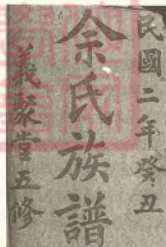 民國二年癸丑
余氏族譜
義聚堂五修